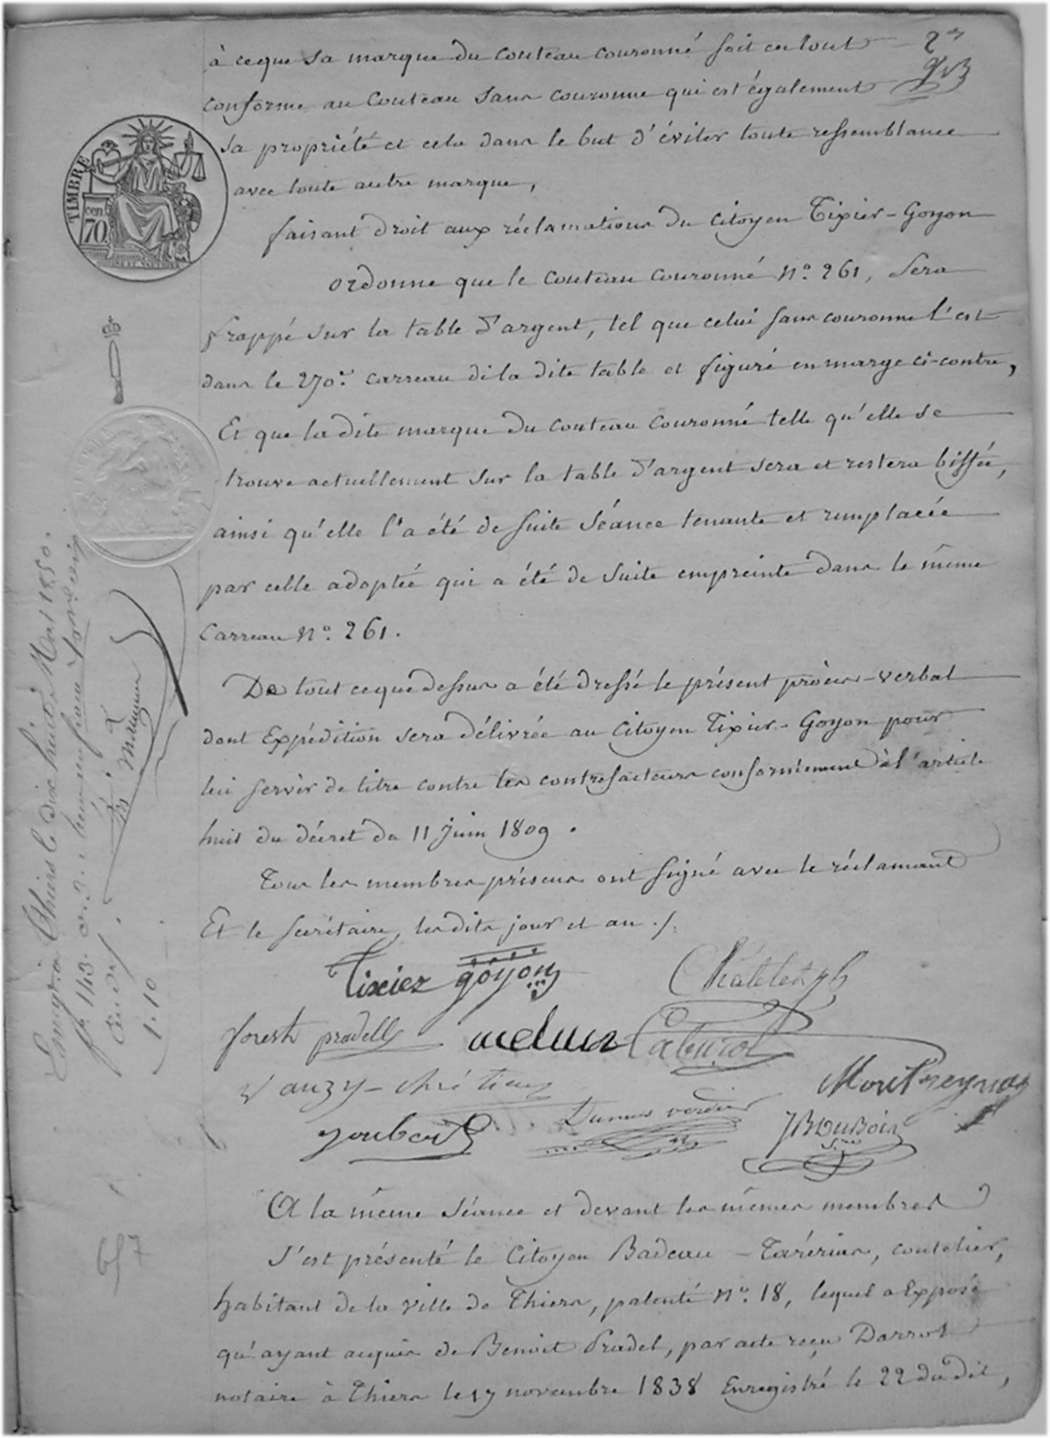 à ceque sa marque du couteau couronné soit en tout
conforme au Couteau sans couronne qui est également
sa propriété et cela dans le but d'éviter toute ressemblance
avec toute autre marque,
faisant droit aux réclamations du citoyen Tixier-Goyon
ordonne que le couteau couronné N.º 261, Sera
frappé sur la table d'argent, tel que celui sans couronne l'est
dans le 270.e carreau de la dite table et figuré en marge ci-contre,
Et que la dite marque du couteau couronné telle qu'elle se
trouve actuellement sur la table d'argent sera et restera biffée,
ainsi qu'elle l'a été de suite Séance tenante et remplacée
par celle adoptée qui a été de suite empreinte dans le même
Carreau N.º 261.
De tout ceque dessus a été dressé le présent procès-verbal
dont Expédition sera délivrée au Citoyen Tixier-Goyon pour
lui servir de titre contre les contrefacteurs conformément à l'article
huit du décret du 11 Juin 1809.
Tous les membres présens ont signé avec le réclamant
Et le Secrétaire, les dits jour et an ./.
Tixier goyon
Chatelet
foresth pradelle
Caburol
Vauzy-chrétien
Montpeyroux
Joubert
Dumas verdier
JB Dubois
S.re
A la même Séance et devant les mêmes membres
S'est présenté le Citoyen Badeau-Tarérias, coutelier,
habitant de la ville de Thiers, patenté N.º 18, lequel a Exposé
qu'ayant acquis de Benoit Pradel, par acte reçu Darrot
notaire à Thiers le 17 novembre 1838 Enregistré le 22 du dit,
TIMBRE
cen
70
Enregistré à Thiers le dix huit Mai 1850.
f.º 143
1.10